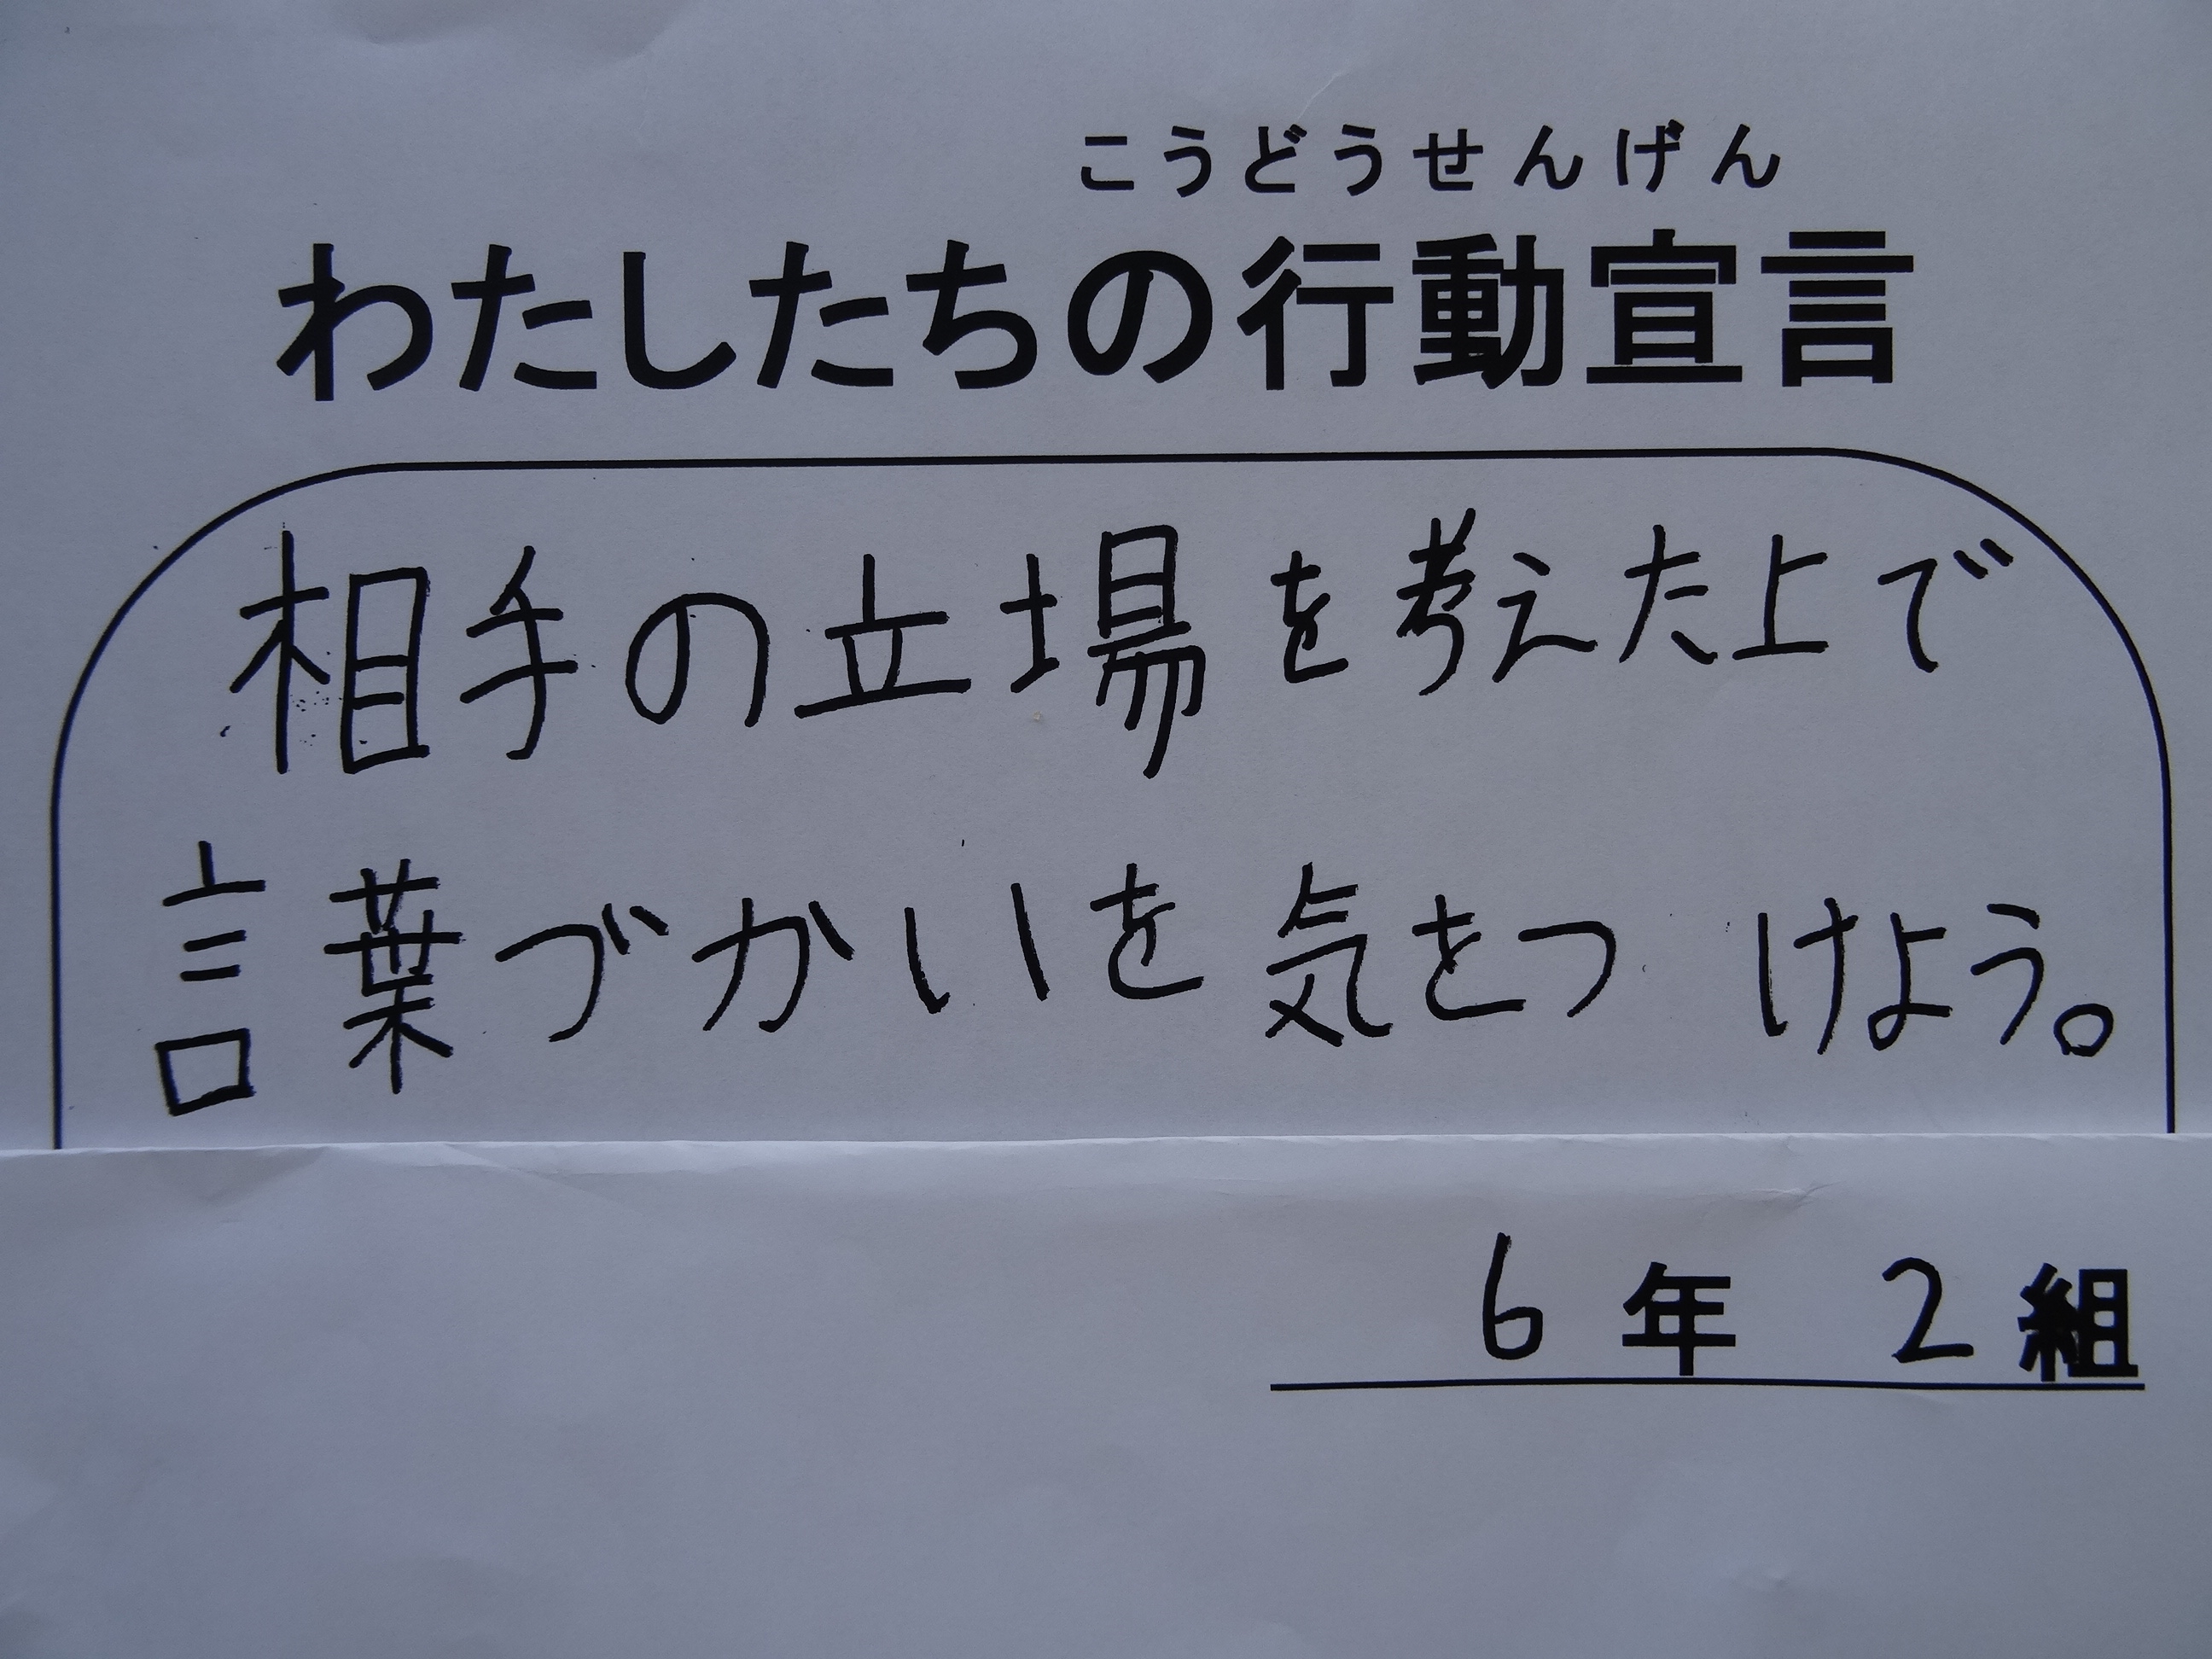 こうどうせんげん
わたしたちの行動宣言
相手の立場を考えた上で
言葉づかいを気をつけよう。
6年 2組